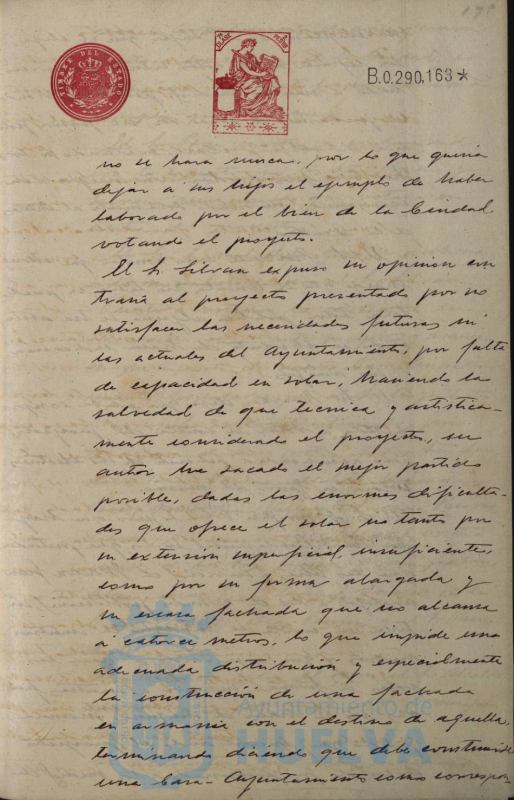 TIMBRE DEL ESTADO
B.0.290,163*
no se hara nunca, por lo que queria
dejar a sus hijos el ejemplo de haber
laborado por el bien de la Ciudad
votando el proyecto.
El Sr Silvan expuso su opinion con
traria al proyecto presentado por no
satisfacer las necesidades futuras ni
las actuales del Ayuntamiento, por falta
de capacidad en solar; haciendo la
salvedad de que tecnica y artistica-
mente considerado el proyecto, su
autor ha sacado el mejor partido
posible, dadas las enormes dificulta-
des que ofrece el solar no tanto por
su extensión superficial, insuficiente,
como por su forma alargada y
su escasa fachada que no alcanza
á catorce metros, lo que impide una
adecuada distribución y especialmente
la construcción de una fachada
en armonia con el destino de aquella,
terminando diciendo que debe construirse
una Casa-Ayuntamiento como correspon-
Ayuntamiento de
HUELVA